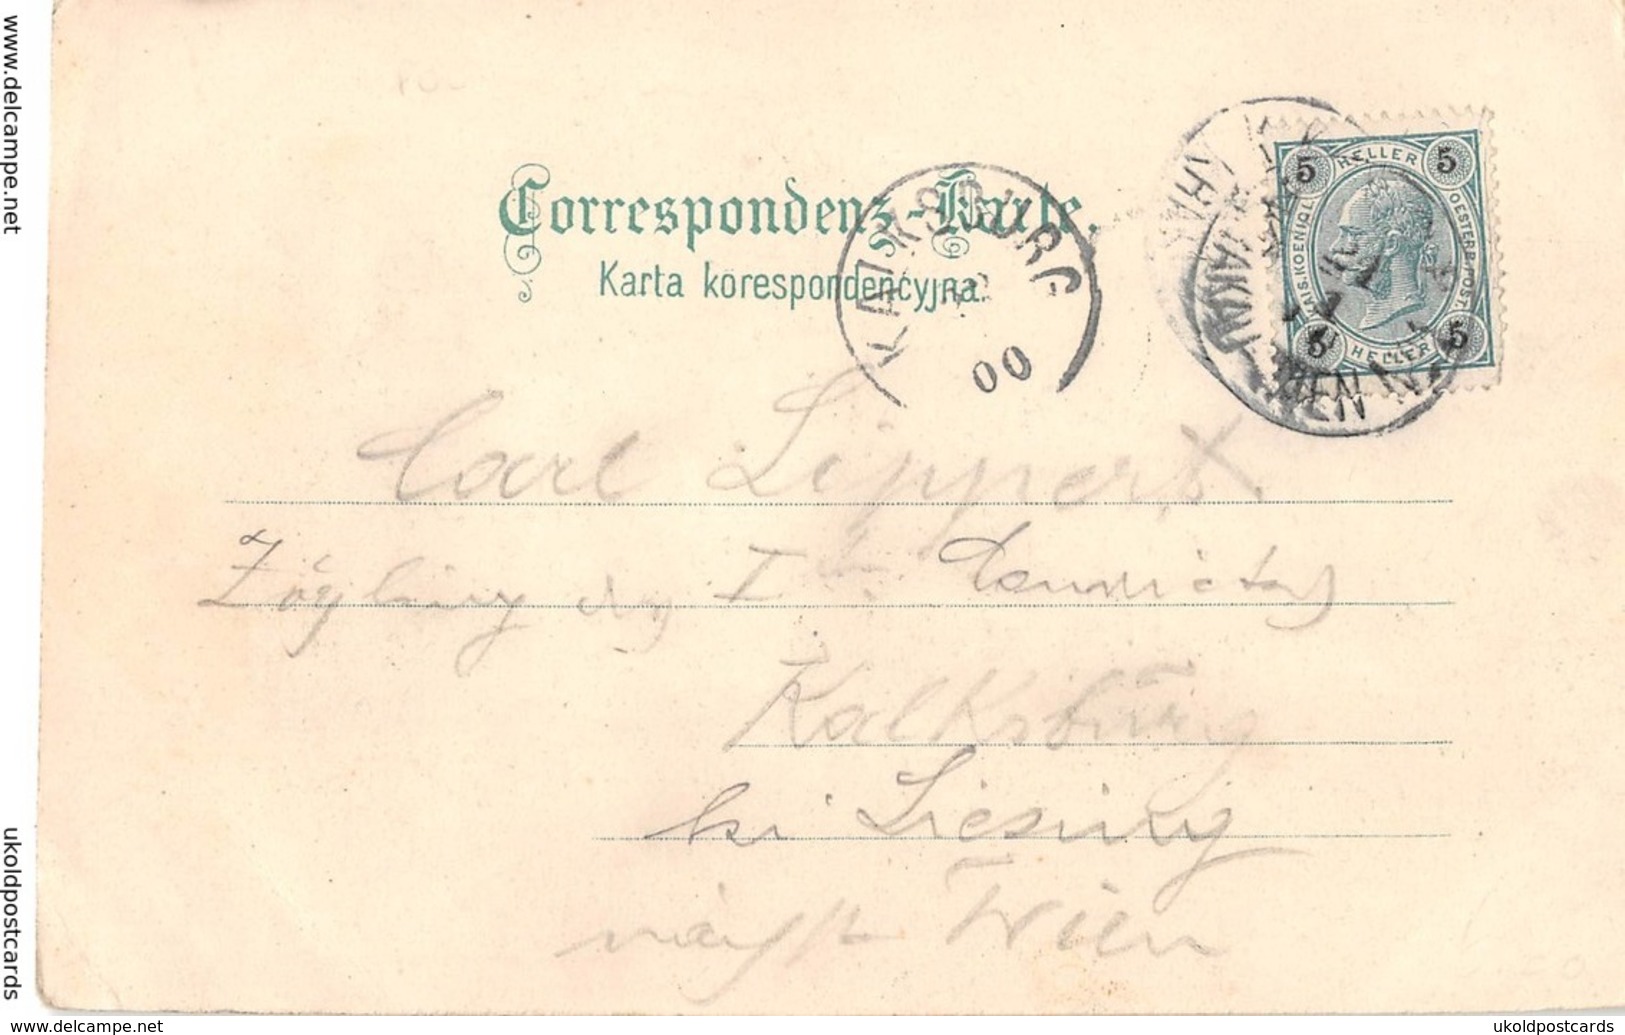 www.delcampe.net
Correspondenz-Karte.
Karta korespondencyjna.
KALKSBURG
00
5 HELLER 5
KAIS. KOENIGL. OESTERR. POST.
5 HELLER 5
WIEN
Carl Lippert
Zögling des I Convictes
Kalksburg
bei Liesing
nächst Wien
ukoldpostcards
www.delcampe.net
ukoldpostcards